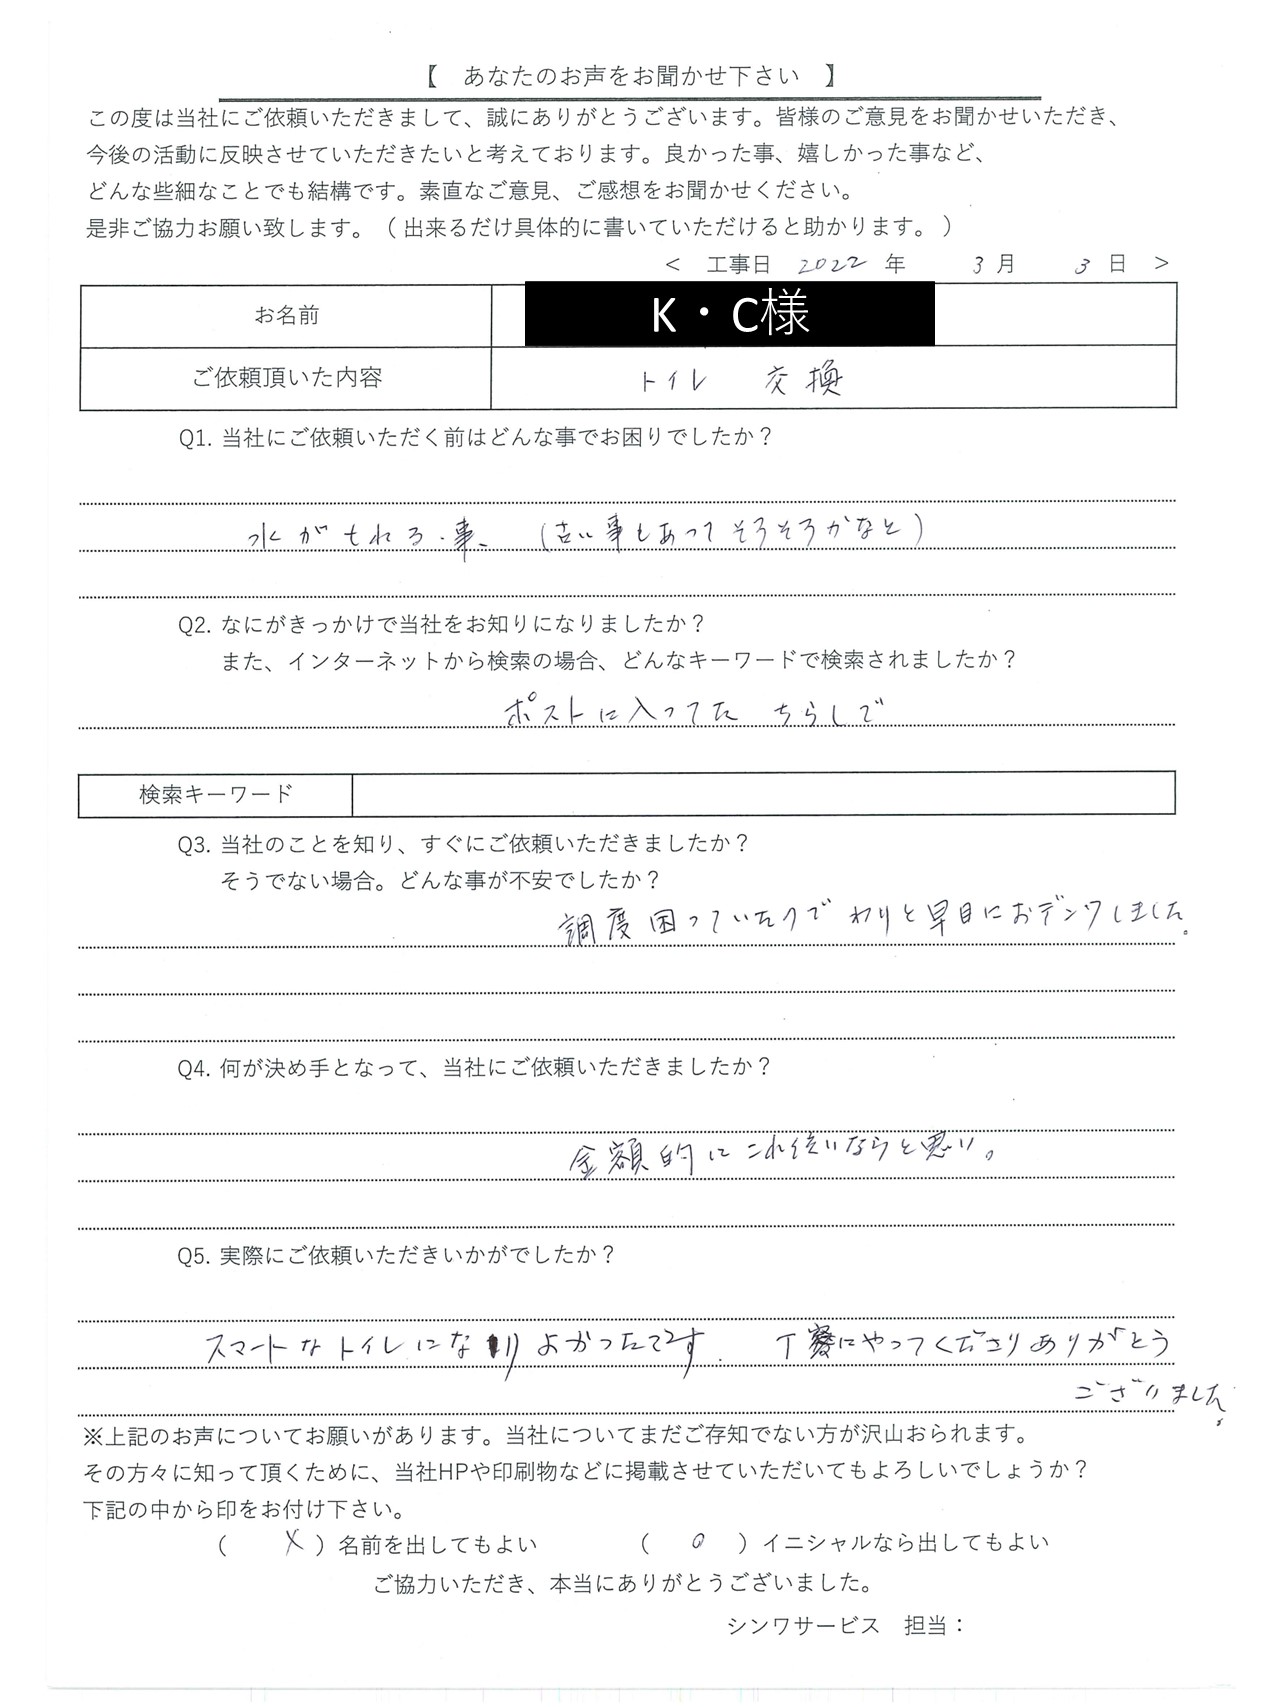 【　あなたのお声をお聞かせ下さい　】
この度は当社にご依頼いただきまして、誠にありがとうございます。皆様のご意見をお聞かせいただき、
今後の活動に反映させていただきたいと考えております。良かった事、嬉しかった事など、
どんな些細なことでも結構です。素直なご意見、ご感想をお聞かせください。
是非ご協力お願い致します。（ 出来るだけ具体的に書いていただけると助かります。 ）
＜　工事日　2022 年　3 月　3 日　＞
お名前　K・C様
ご依頼頂いた内容　トイレ　交換
Q1. 当社にご依頼いただく前はどんな事でお困りでしたか？
水がもれる事、（古い事もあってそろそろかなと）
Q2. なにがきっかけで当社をお知りになりましたか？
また、インターネットから検索の場合、どんなキーワードで検索されましたか？
ポストに入ってた　ちらしで
検索キーワード
Q3. 当社のことを知り、すぐにご依頼いただきましたか？
そうでない場合。どんな事が不安でしたか？
調度困っていたのでわりと早目におデンワしました。
Q4. 何が決め手となって、当社にご依頼いただきましたか？
金額的にこれ位いならと思い。
Q5. 実際にご依頼いただきいかがでしたか？
スマートなトイレになりよかったです。　丁寧にやってくださりありがとう
ございました。
※上記のお声についてお願いがあります。当社についてまだご存知でない方が沢山おられます。
その方々に知って頂くために、当社HPや印刷物などに掲載させていただいてもよろしいでしょうか？
下記の中から印をお付け下さい。
（　X　）名前を出してもよい　（　○　）イニシャルなら出してもよい
ご協力いただき、本当にありがとうございました。
シンワサービス　担当：